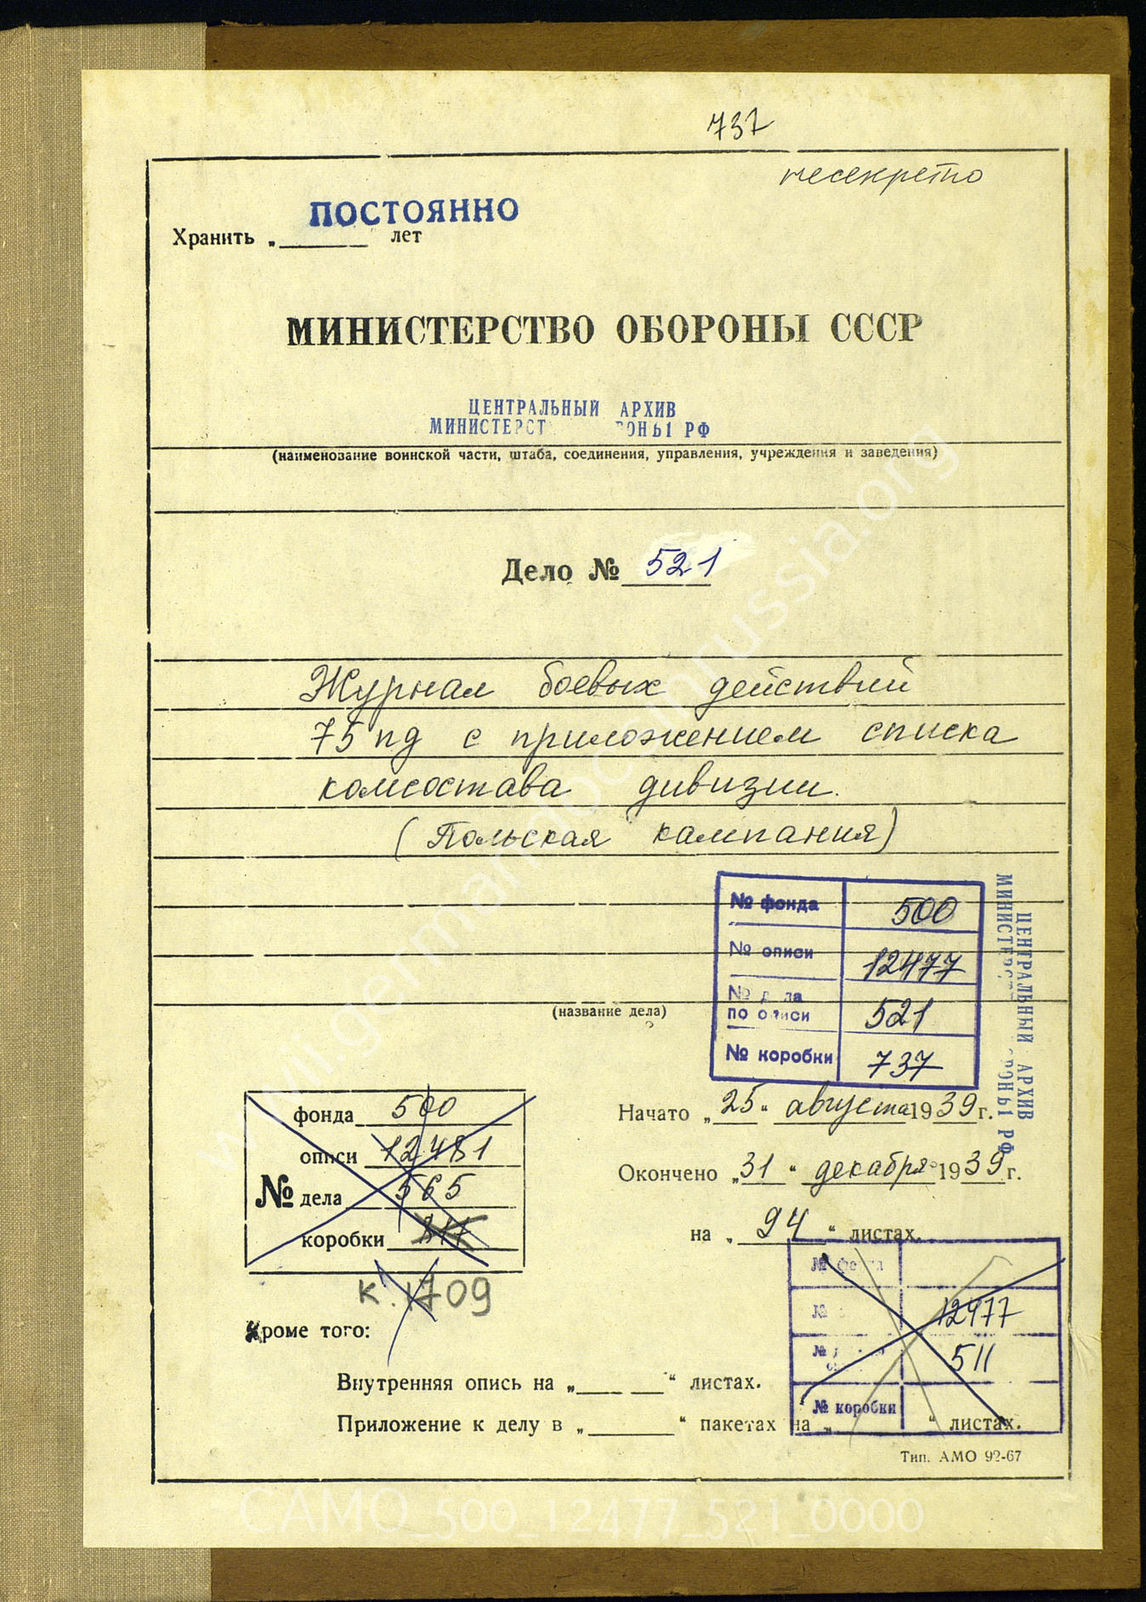 737
несекретно
ПОСТОЯННО
Хранить „ лет
МИНИСТЕРСТВО ОБОРОНЫ СССР
ЦЕНТРАЛЬНЫЙ АРХИВ
МИНИСТЕРСТ РОНЫ РФ
(наименование воинской части, штаба, соединения, управления, учреждения и заведения)
Дело № 521
Журнал боевых действий
75 пд с приложением списка
комсостава дивизии.
(Польская кампания)
№ фонда 500
№ описи 12477
№ дела по описи 521
№ коробки 737
ЦЕНТРАЛЬНЫЙ АРХИВ
МИНИСТЕРСТ РОНЫ РФ
(название дела)
Начато „25“ августа 1939 г.
Окончено „31“ декабря 1939 г.
на „ 94 “ листах.
№
фонда 500
описи 12481
дела 565
коробки
к. 1709
№ фонда
№ 12477
№ 511
№ коробки
Кроме того:
Внутренняя опись на „ “ листах.
Приложение к делу в „ “ пакетах на „ “ листах.
Тип. АМО 92-67
www.germandocsinrussia.org
CAMO_500_12477_521_0000